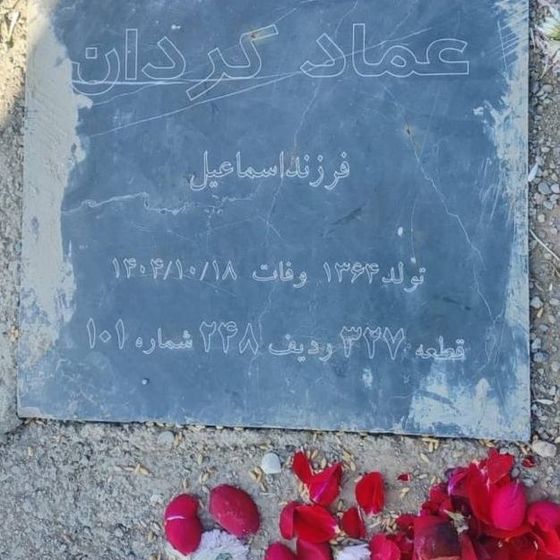 عماد کردان
فرزند اسماعیل
تولد ۱۳۶۴ وفات ۱۴۰۴/۱۰/۱۸
قطعه ۳۲۷ ردیف ۲۴۸ شماره ۱۰۱